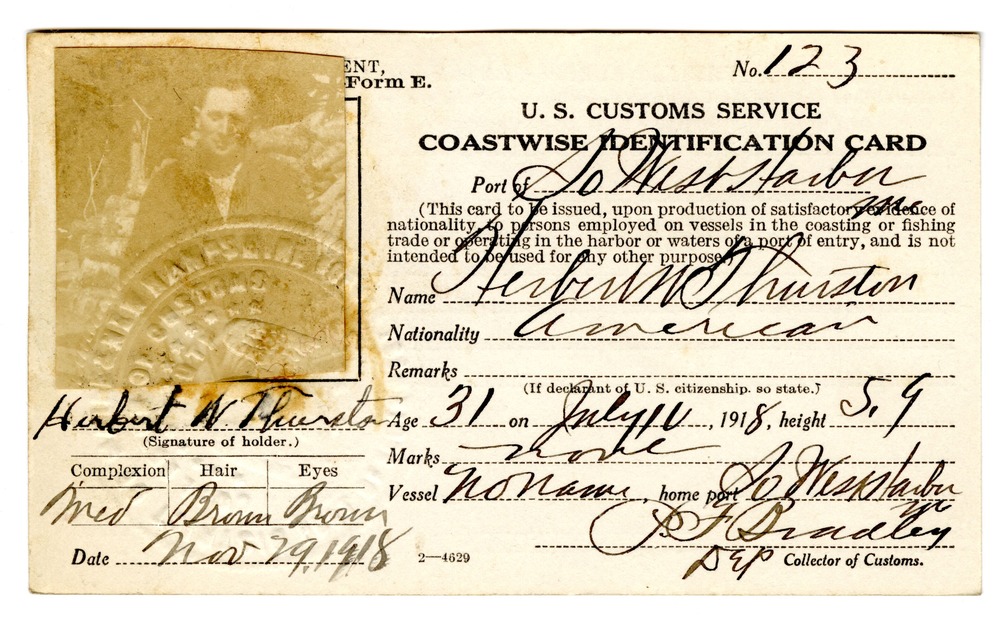 ENT,
Form E.
No. 123
U. S. CUSTOMS SERVICE
COASTWISE IDENTIFICATION CARD
Port of So West Harbor
Me
(This card to be issued, upon production of satisfactory evidence of
nationality, to persons employed on vessels in the coasting or fishing
trade or operating in the harbor or waters of a port of entry, and is not
intended to be used for any other purpose.)
Name Herbert W Thurston
Nationality American
Remarks
(If declarant of U. S. citizenship, so state.)
Age 31 on July 11, 1918, height 5.9
Marks none
Vessel No Name, home port So West Harbor
Me
P. F. Bradley
DEP Collector of Customs.
Herbert W. Thurston
(Signature of holder.)
Complexion Hair Eyes
Med Brown Brown
Date Nov 29, 1918
2—4629